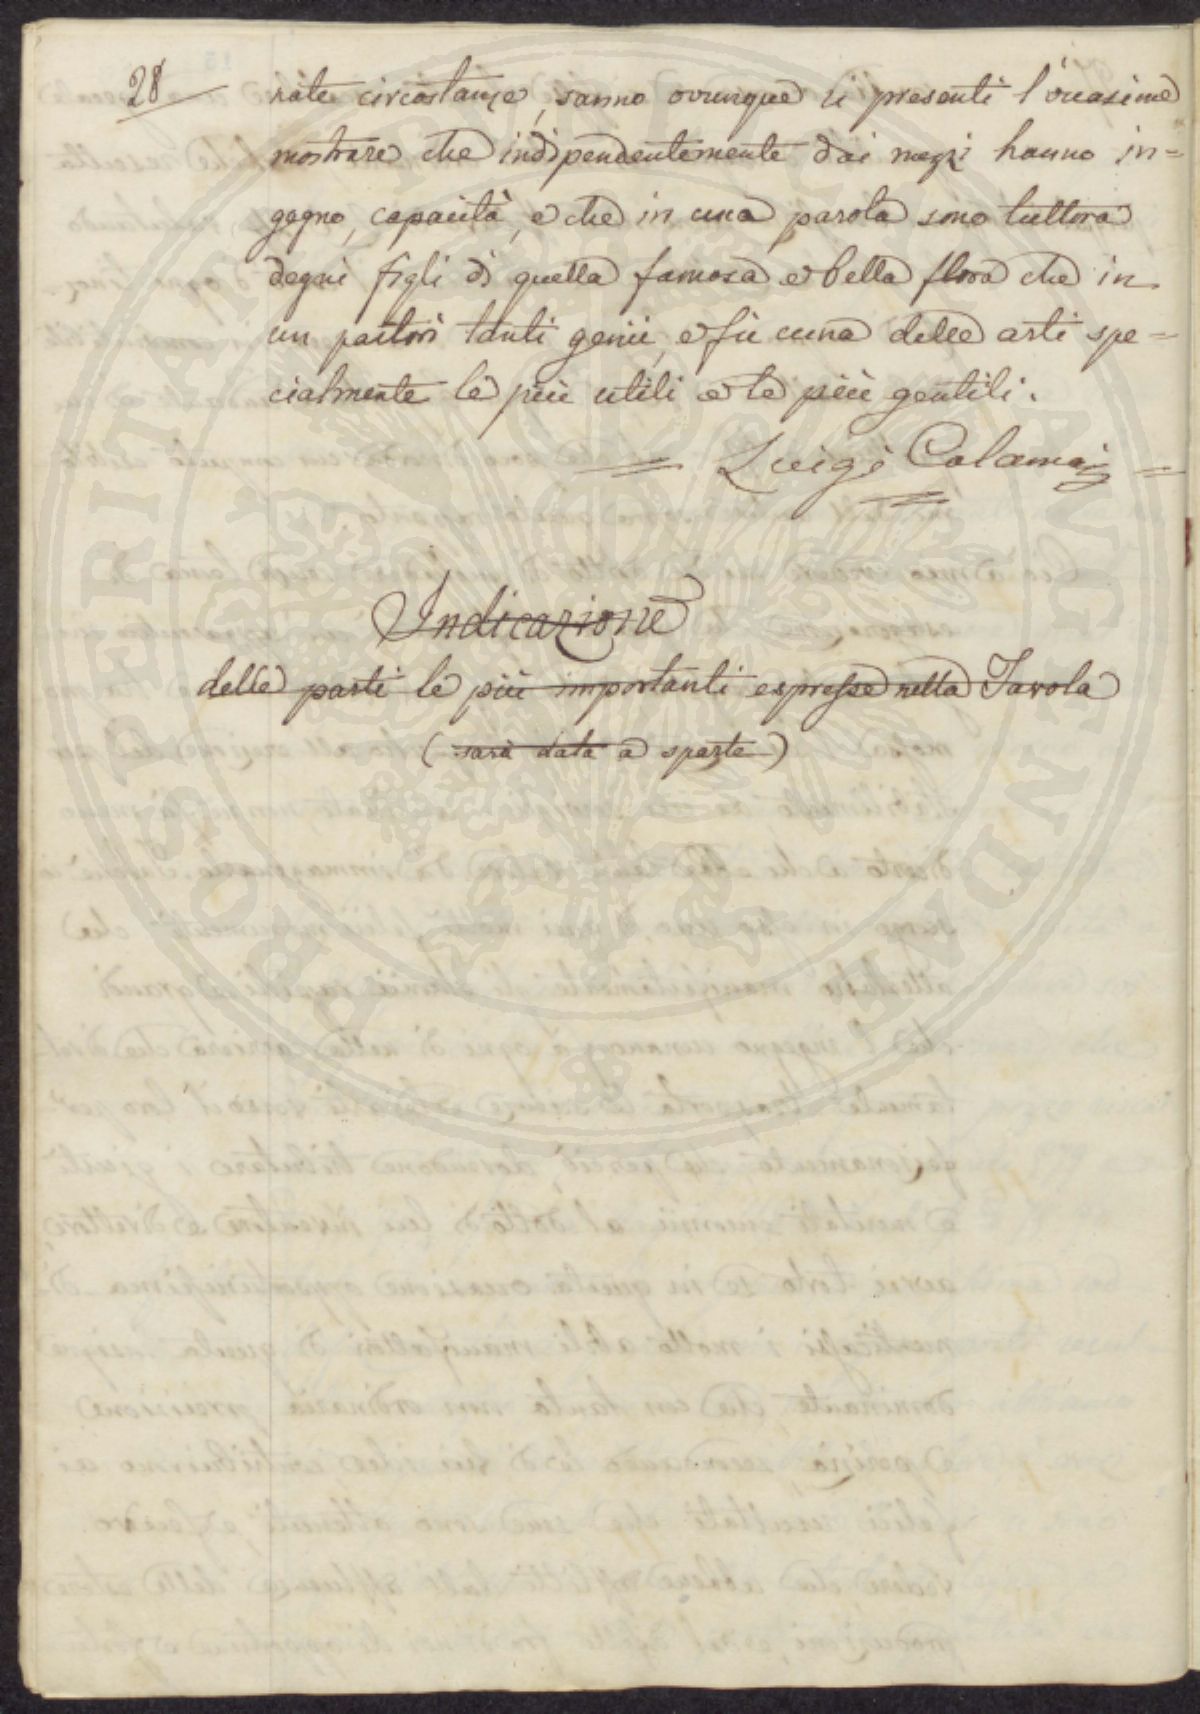 28
rate circostanze, sanno ovunque si presenti l'occasione
mostrare che indipendentemente dai mezzi hanno in=
gegno, capacità, e che in una parola sono tuttora
degni figli di quella famosa e bella flora che in
un partorì tanti genii, e fù cuna delle arti spe=
cialmente le più utili e le più gentili.
= Luigi Calamai =
Indicazione
delle parti le più importanti espresse nella Tavola
(sarà data a sparte)
PROSPERITATI AUGENDAE